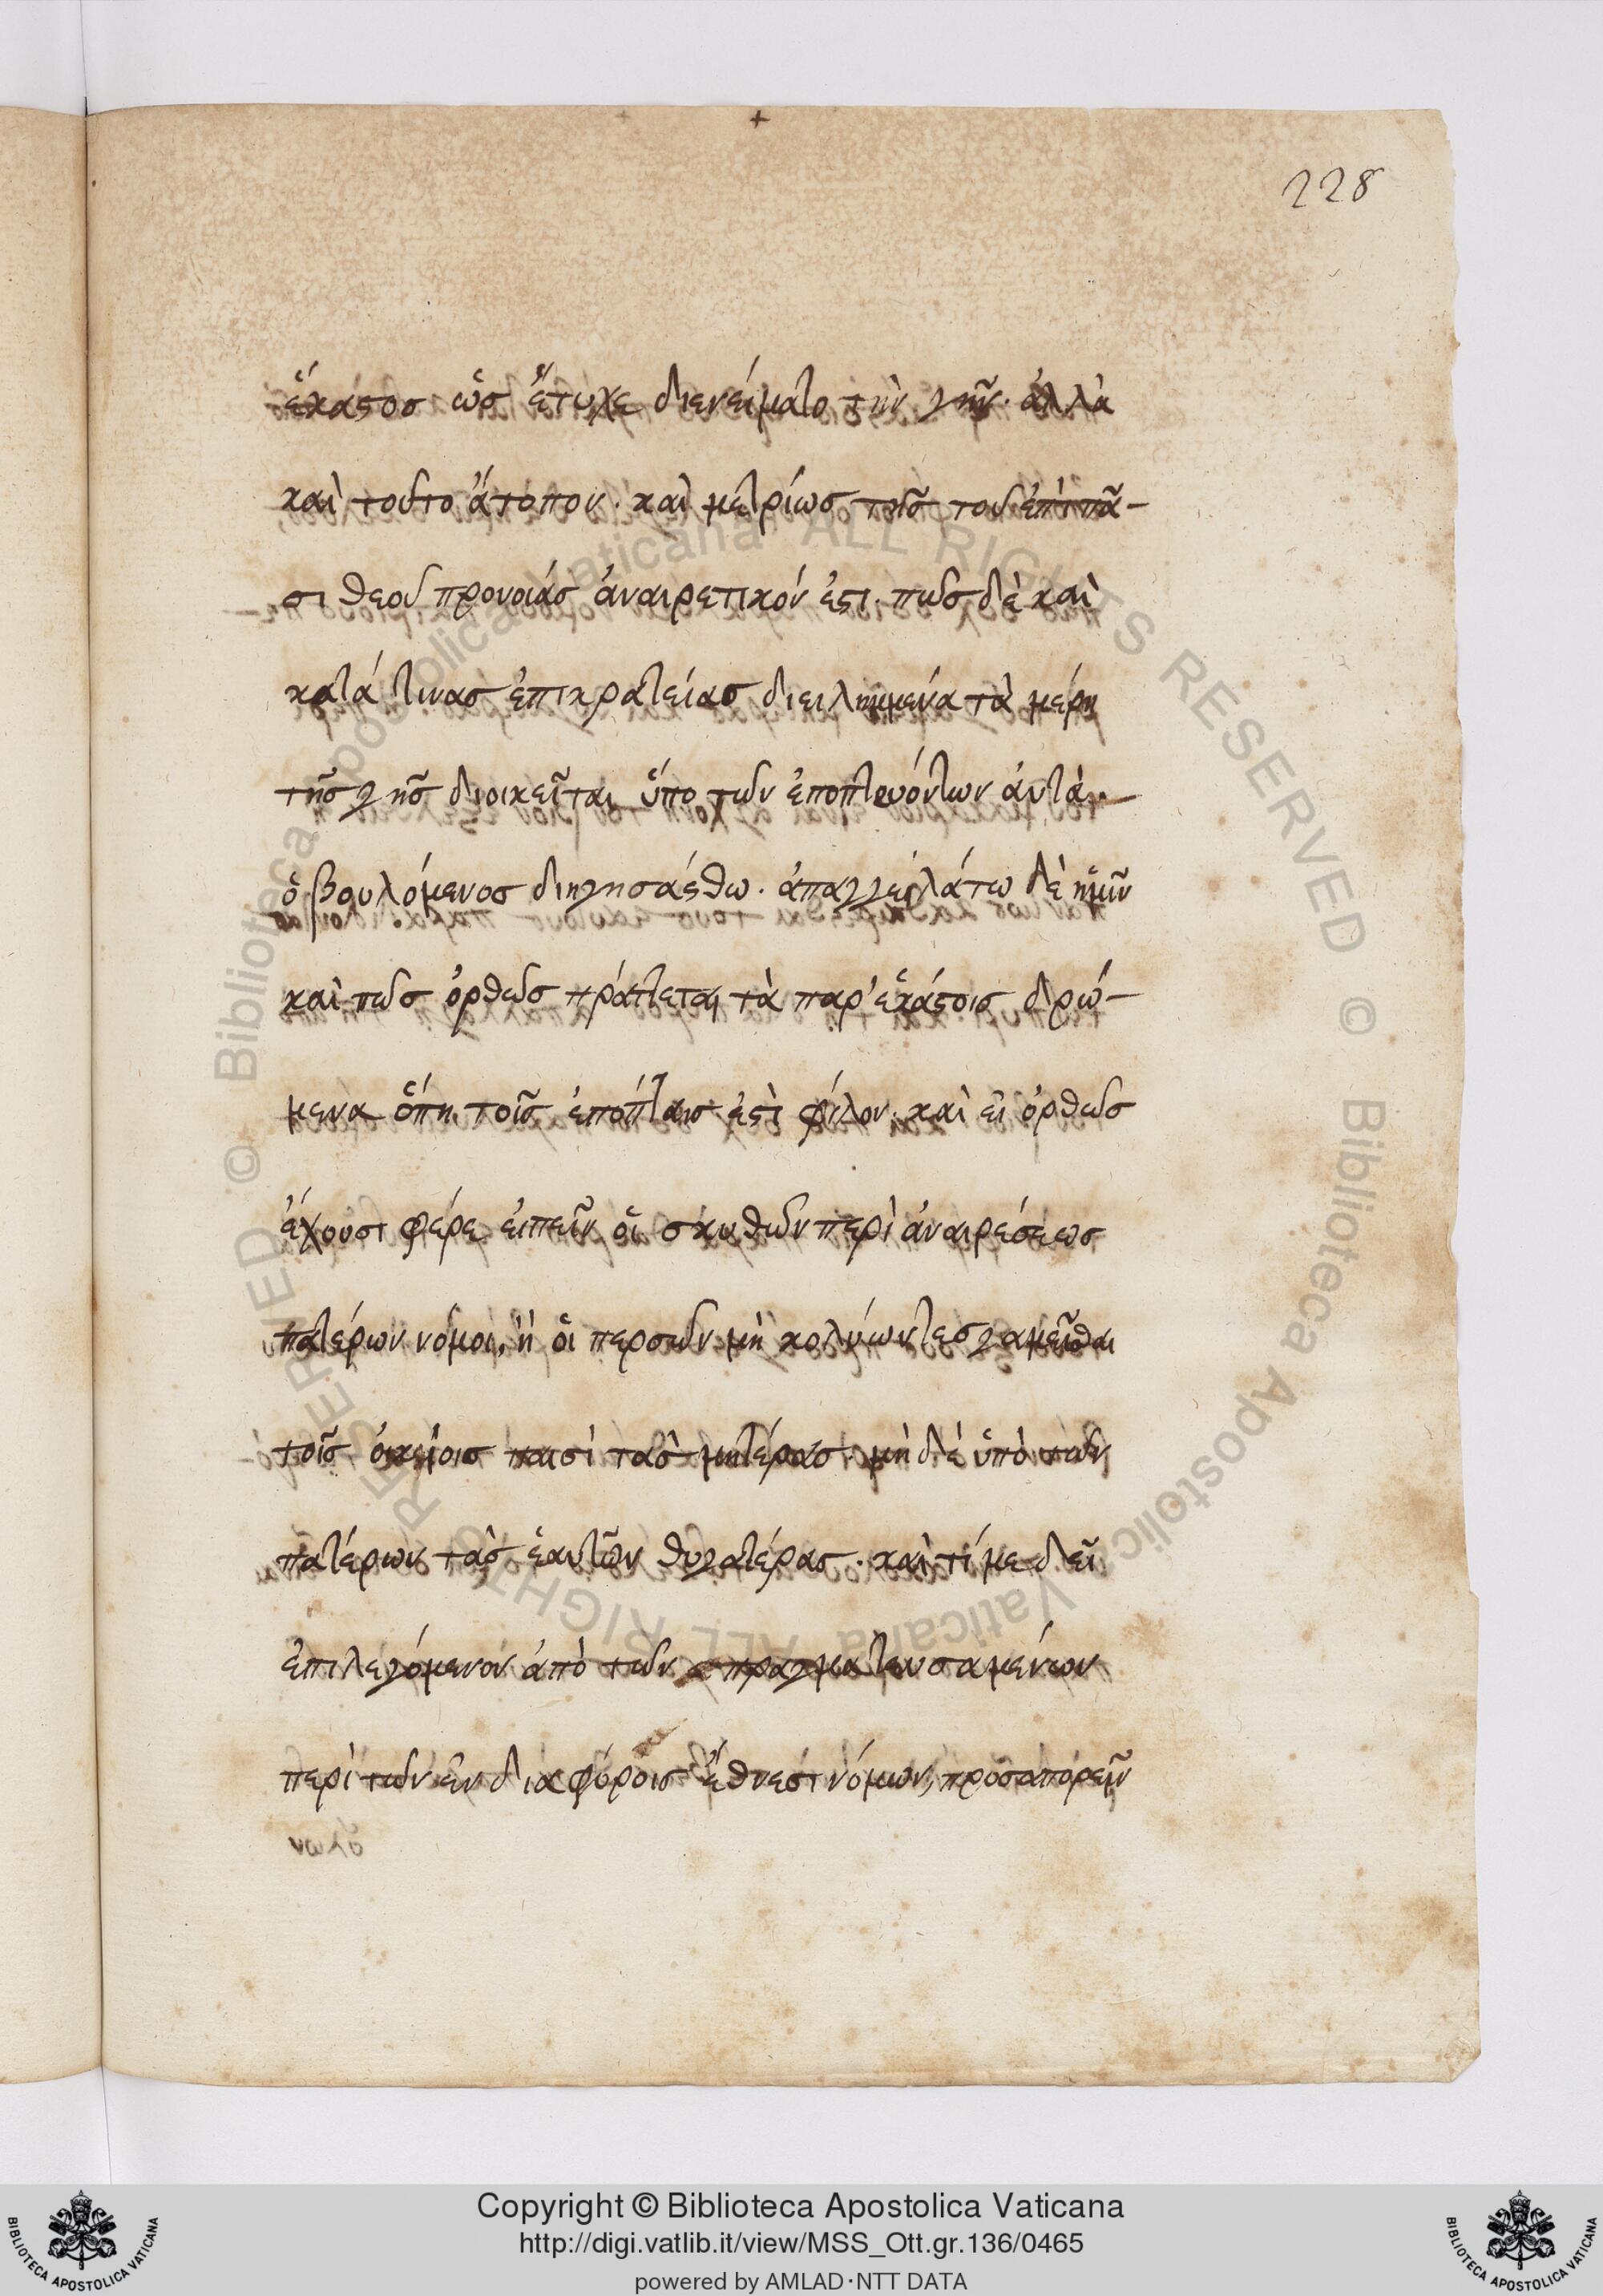 228
ἕκαστος ὡς ἔτυχε διενείματο τὴν γῆν. ἀλλὰ
καὶ τοῦτο ἄτοπον. καὶ μετρίως τῆς τοῦ ἐπὶ πᾶ-
σι θεοῦ προνοίας ἀναιρετικόν ἐστι. πῶς δὲ καὶ
κατά τινας ἐπικρατείας διειλημμένα τὰ μέρη
τῆς γῆς διοικεῖται ὑπὸ τῶν ἐποπτευόντων ἀυτὰ.
ὁ βουλόμενος διηγησάσθω. ἀπαγγειλάτω δὲ ἡμῖν
καὶ πῶς ὀρθῶς πράττεται τὰ παρ' ἑκάστοις δρώ-
μενα ὅπη τοῖς ἐπόπταις ἐστὶ φίλον. καὶ εἰ ὀρθῶς
ἔχουσι φέρε εἰπεῖν οἱ σκυθῶν περὶ ἀναιρέσεως
πατέρων νόμοι, ἢ οἱ περσῶν μὴ κολύωντες γαμεῖσθαι
τοῖς οἰκείοις παισὶ τὰς μητέρας. μὴ δὲ ὑπὸ τῶν
πατέρων τὰς ἑαυτῶν θυγατέρας. καὶ τί με δεῖ
ἐπιλεγόμενον ἀπὸ τῶν πραγματευσαμένων
περὶ τῶν ἐν διαφόροις ἔθνεσι νόμων, προσαπορεῖν
Copyright © Biblioteca Apostolica Vaticana
http://digi.vatlib.it/view/MSS_Ott.gr.136/0465
powered by AMLAD·NTT DATA
BIBLIOTECA APOSTOLICA VATICANA
BIBLIOTECA APOSTOLICA VATICANA
© Biblioteca Apostolica Vaticana ALL RIGHTS RESERVED © Biblioteca Apostolica Vaticana ALL RIGHTS RESERVED